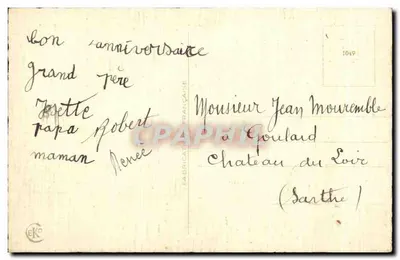 bon anniversaire
grand père
Josette
papa Robert
maman Renée
FABRICATION FRANÇAISE
1049
Monsieur Jean Mouremble
à Goulard
Chateau du Loir
(Sarthe)
CRAPELA
EKC